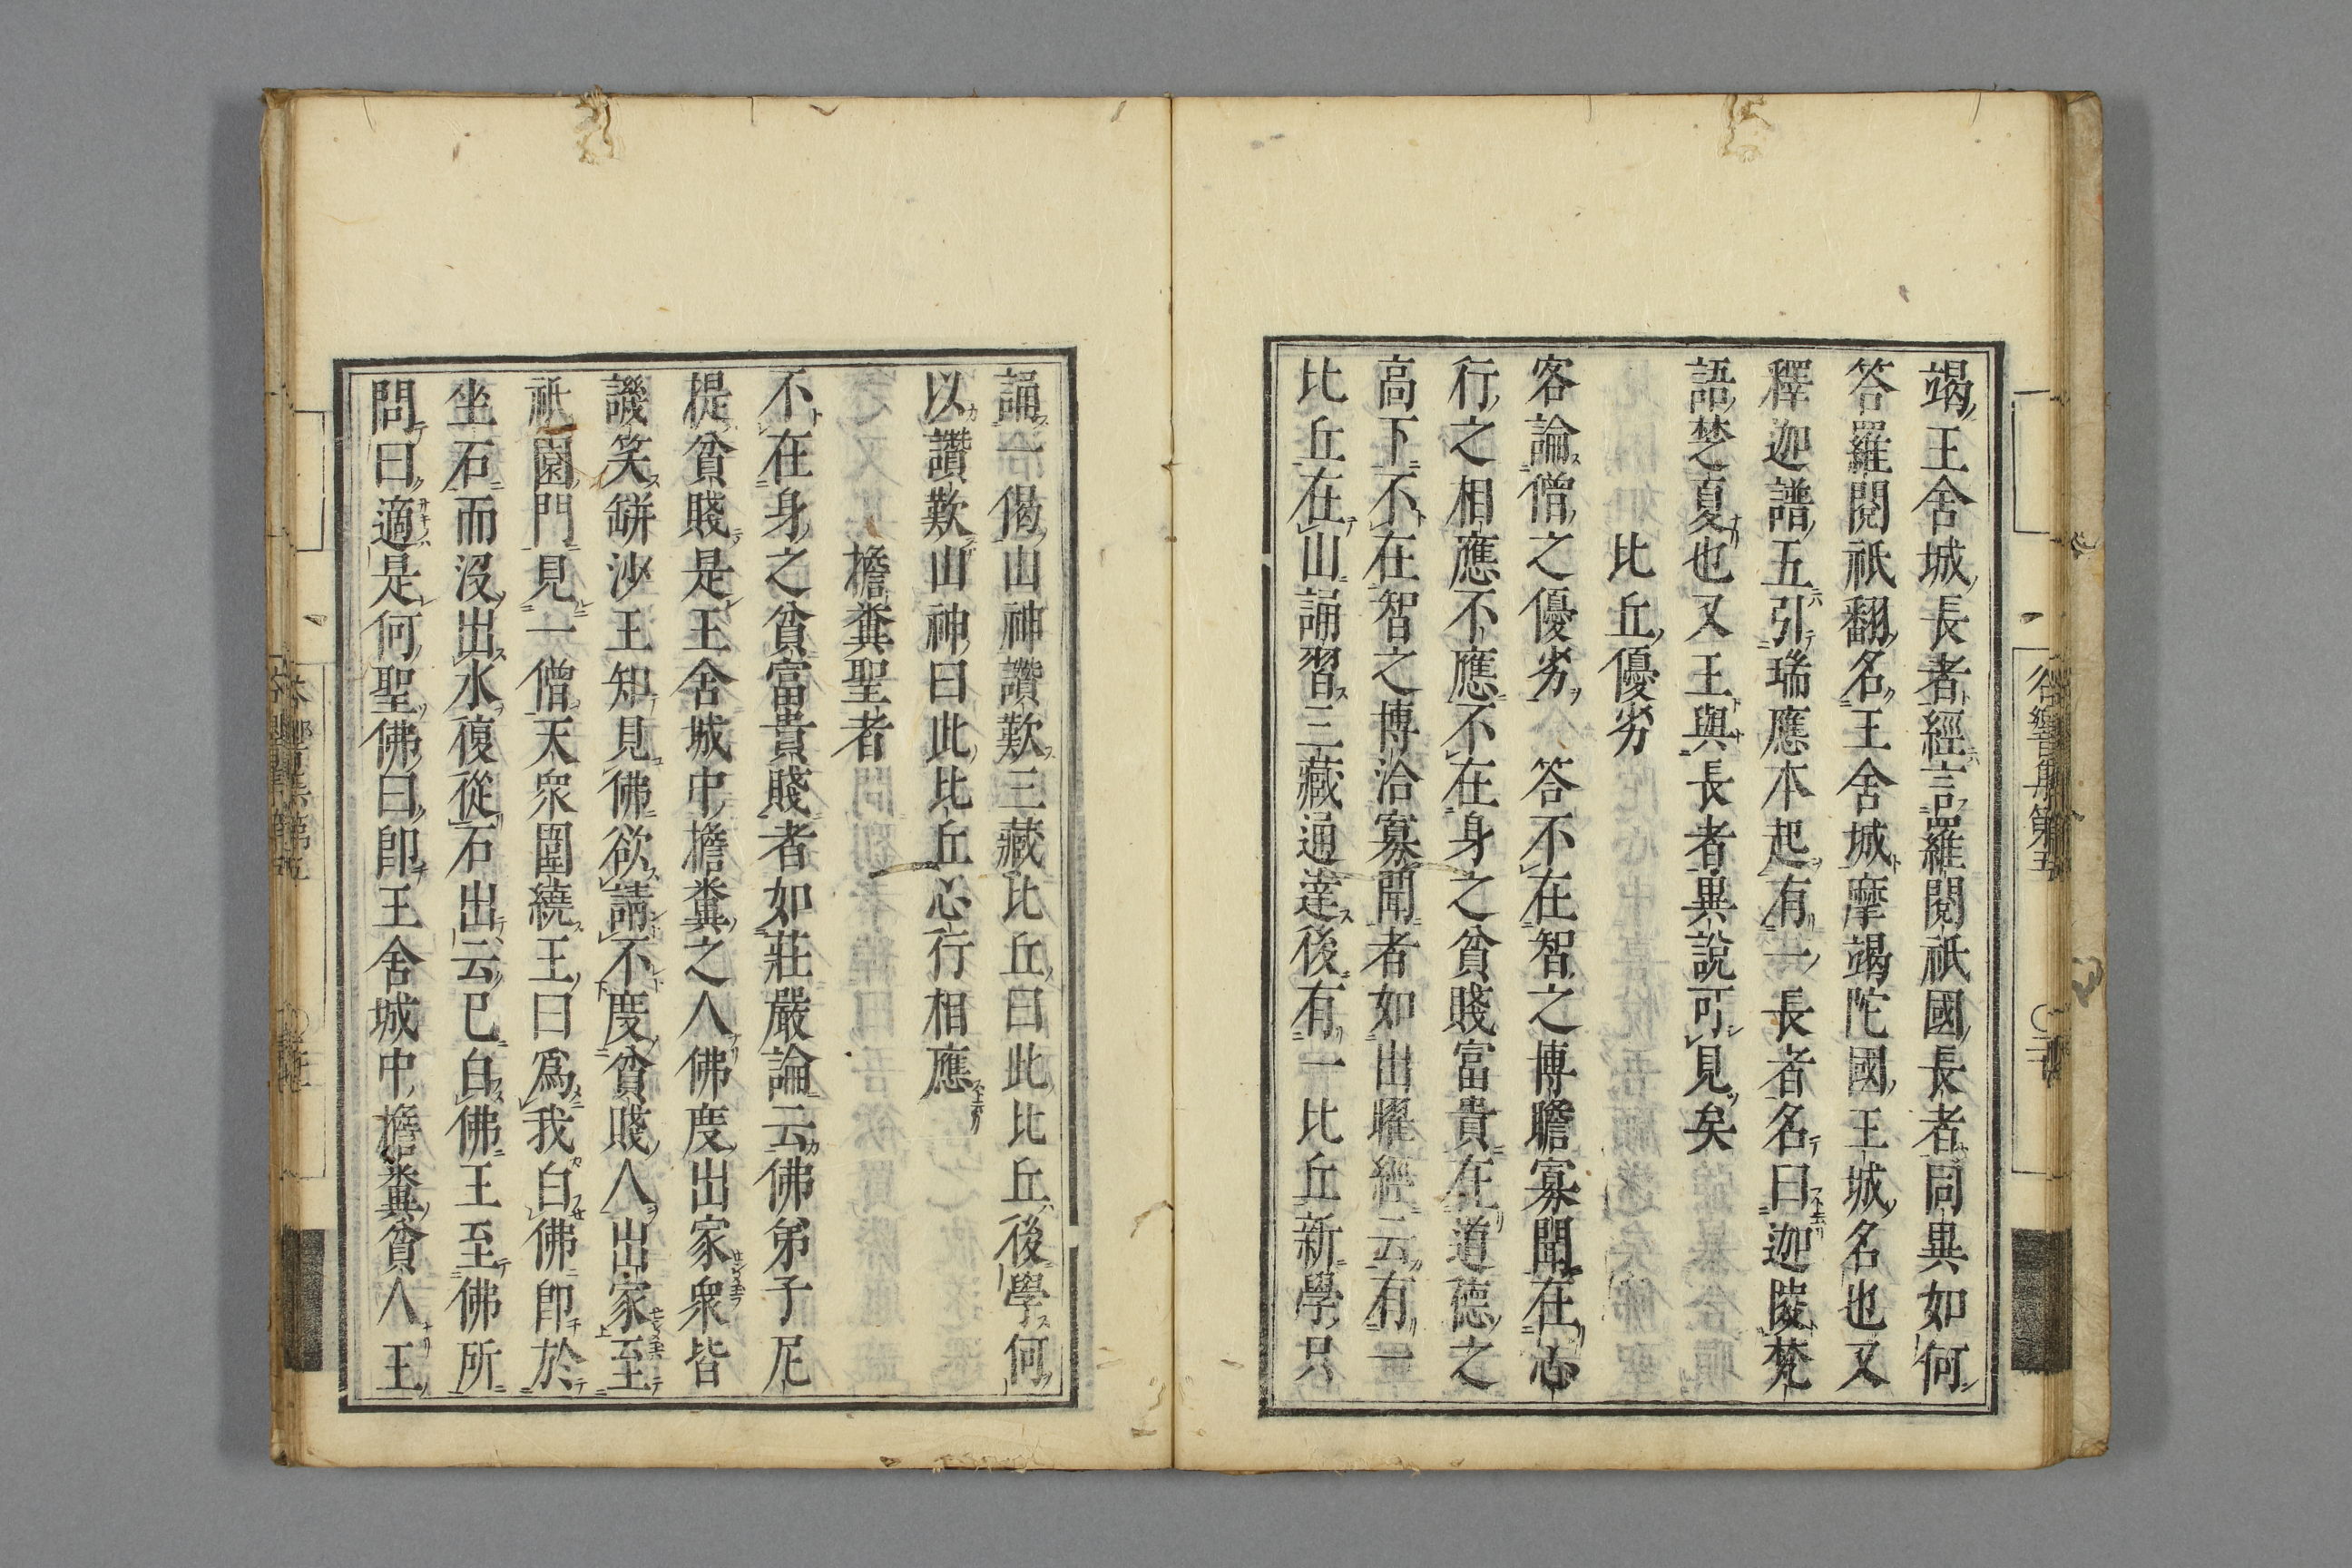 竭王舍城長者經言羅閱祇國長者同異如何
答羅閱祇翻名王舍城摩竭陀國王城名也又
釋迦譜五引瑞應本起有一長者名曰迦陵梵
語楚夏也又王與長者異說可見矣
比丘優劣
客論僧之優劣 答不在智之博瞻寡聞在志
行之相應不應不在身之貧賤富貴在道德之
高下不在智之博洽寡聞者如出曜經云有一
比丘在山誦習三藏通達後有一比丘新學只
誦一偈山神讚歎三藏比丘曰此比丘後學何
以讚歎山神曰此比丘心行相應
擔糞聖者
不在身之貧富貴賤者如莊嚴論云佛弟子尼
提貧賤是王舍城中擔糞之人佛度出家衆皆
譏笑缾沙王知見佛欲請不度貧賤人出家至
祇園門見一僧天衆圍繞王曰爲我白佛卽於
坐石而沒出水復從石出云已白佛王至佛所
問曰適是何聖佛曰卽王舍城中擔糞貧人王